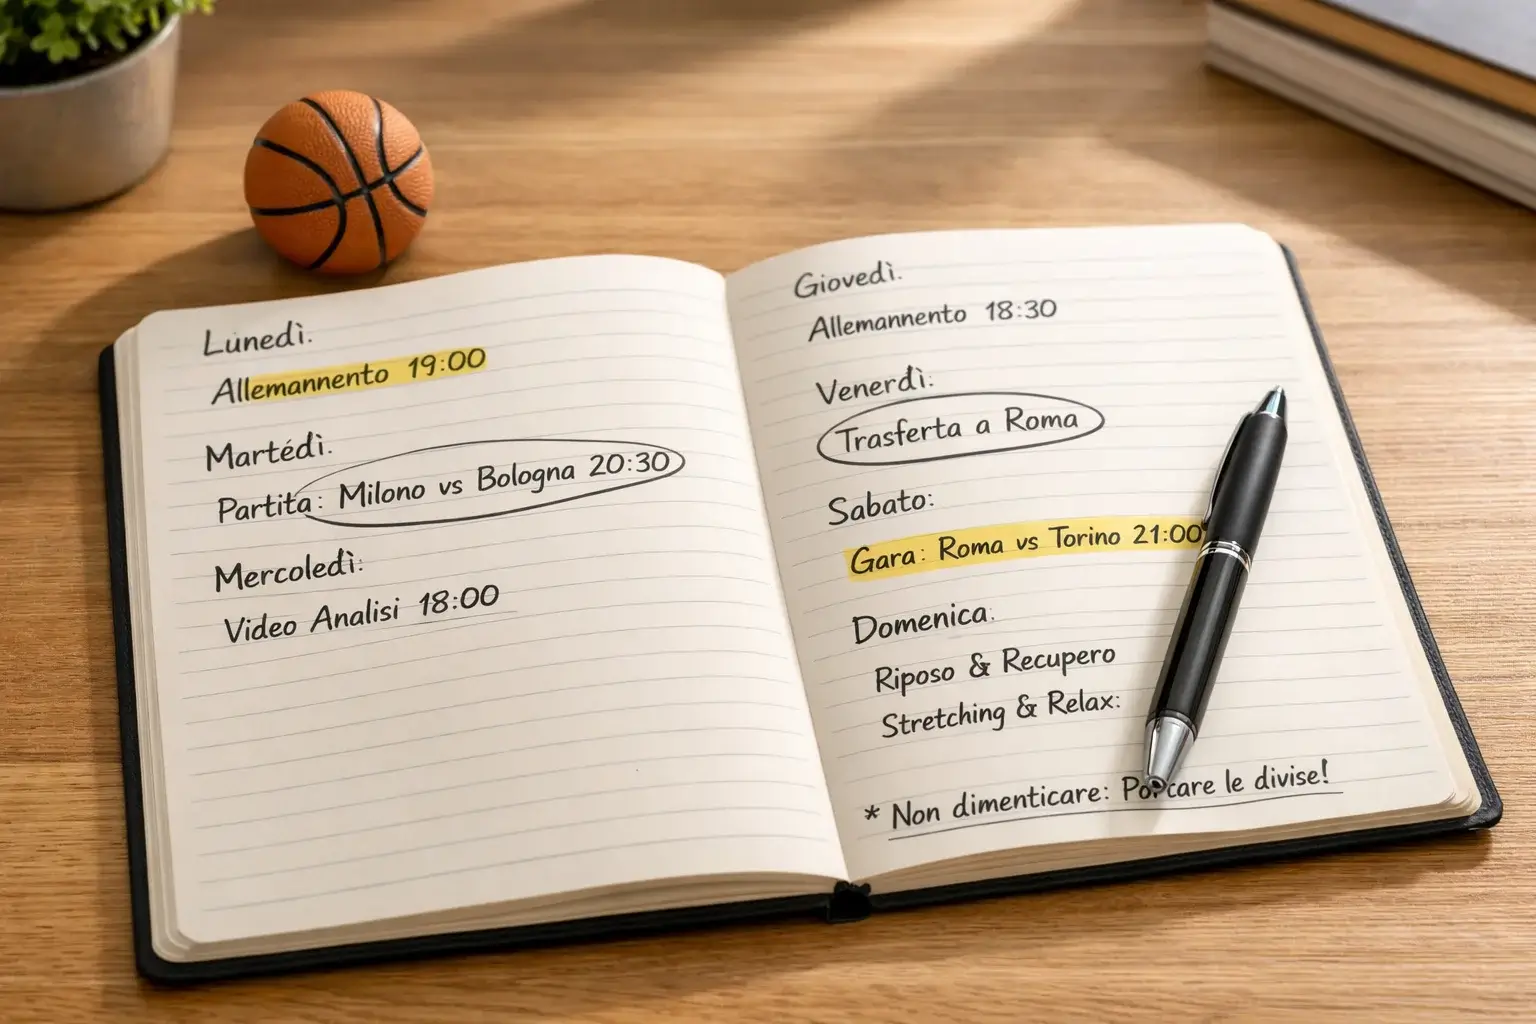 Lunedì.
Allemannento 19:00
Martédì.
Partita: Milono vs Bologna 20:30
Mercoledì:
Video Analisi 18:00
Giovedì.
Allemannento 18:30
Venerdì:
Trasferta a Roma
Sabato:
Gara: Roma vs Torino 21:00
Domenica.
Riposo & Recupero
Stretching & Relax:
* Non dimenticare: le divise!